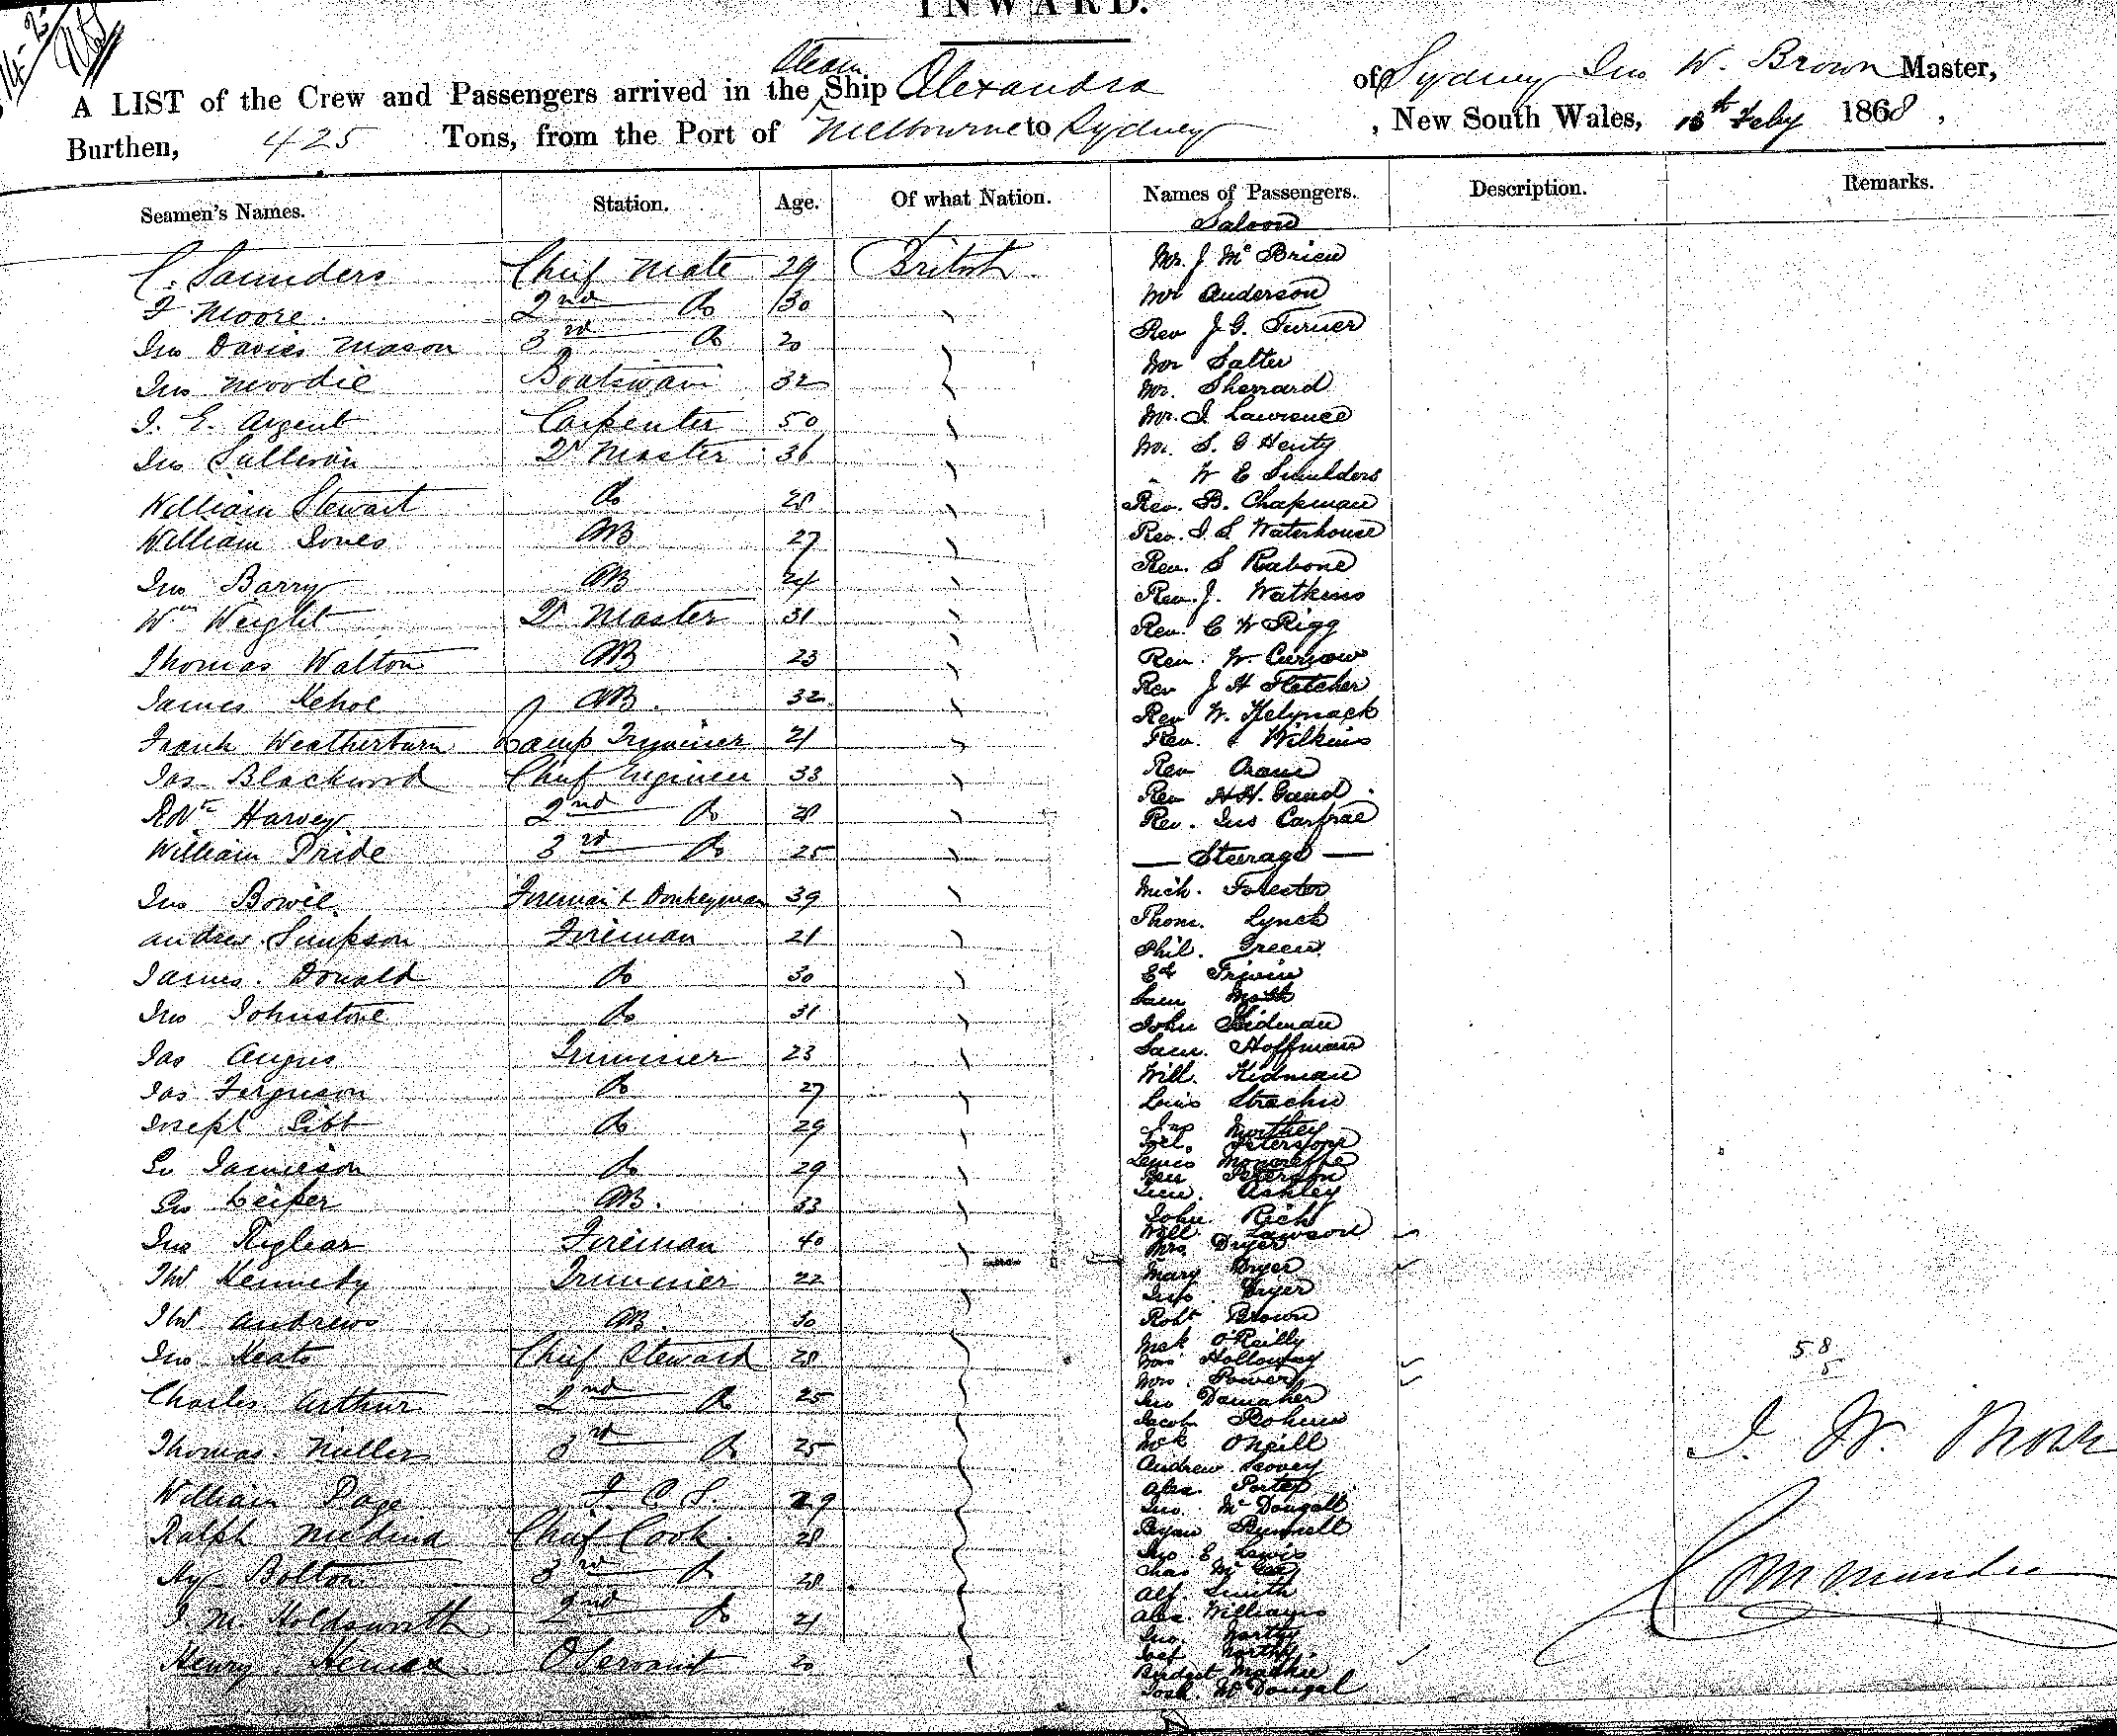 INWARD.
A LIST of the Crew and Passengers arrived in the Steam Ship Alexandra of Sydney Jno W. Brown Master,
Burthen, 425 Tons, from the Port of Melbourne to Sydney, New South Wales, 13th Feby 1868,
Seamen's Names. Station. Age. Of what Nation. Names of Passengers. Description. Remarks.
C. Saunders Chief Mate 29 British
F Moore 2nd Do 30
Jno Davies Mason 3rd Do 20
Jno Moodie Boatswain 32
J. E. Argent Carpenter 50
Jno Sullivan Qr Master 36
William Stewart Do 28
William Jones AB 27
Jno Barry AB 24
Wm Weight Qr Master 31
Thomas Walton AB 23
James Kehoe AB. 32
Frank Weatherburn Lamp Trimmer 21
Jas Blackwood Chief Engineer 33
Robt Harvey 2nd Do 28
William Pride 3rd Do 25
Jno Bowie Fireman & Donkeyman 39
Andrew Simpson Fireman 21
James Donald Do 30
Jno Johnstone Do 31
Jas Angus Trimmer 23
Jas Ferguson Do 27
Joseph Do 29
Geo Jamieson Do 29
Geo Leiper AB. 33
Jno Fireman 40
Thos Kennedy Trimmer 22
Thos Andrews AB. 30
Jno Keats Chief Steward 28
Charles Arthur 2nd Do 25
Thomas Miller 3rd Do 25
William Page F. C. S. 29
Ralph Medina Chief Cook 28
Hy Bolton 3rd Do 28
J. M. Holdsworth 2nd Do 21
Henry Servant 20
Saloon
Mr. J McBrien
Mr Anderson
Rev J. G. Turner
Mr Salter
Mr. Sherrard
Mr. J Lawrence
Mr. S. G Henty
" W E Smulders
Rev. B. Chapman
Rev. J. S Waterhouse
Rev. S Rabone
Rev. J. Watkins
Rev. C W Rigg
Rev. W. Curnow
Rev J H Fletcher
Rev W. Kelynack
Rev. Wilkins
Rev Orane
Rev H H. Gaud
Rev. Jno Carfrae
Steerage
Mich. Forester
Thom. Lynch
Phil. Green
Ed Irwin
Sam Mott
John Kidman
Sam. Hoffman
Will. Kidman
Louis Strachn
Jno Northey
Peterson
Lewis Moncreffe
Peterson
Ashley
John Rich
Will Lawson
Mrs Dryer
Mary Dryer
Jno Dryer
Robt Brown
Mck O'Reilly
Mrs Holloway
Mrs Power
Jno Damaher
Jacob Bohme
Mck ONeill
Andrew Scovey
Alex. Porter
Jno. McDougall
Bryan Bunnell
Jno E Lewis
Chas
Alf. Smith
Alex Williams
Jno. Northey
Northey
Bridget Mackie
Josh. McDougal
58
5
J. W. Brown
Commander